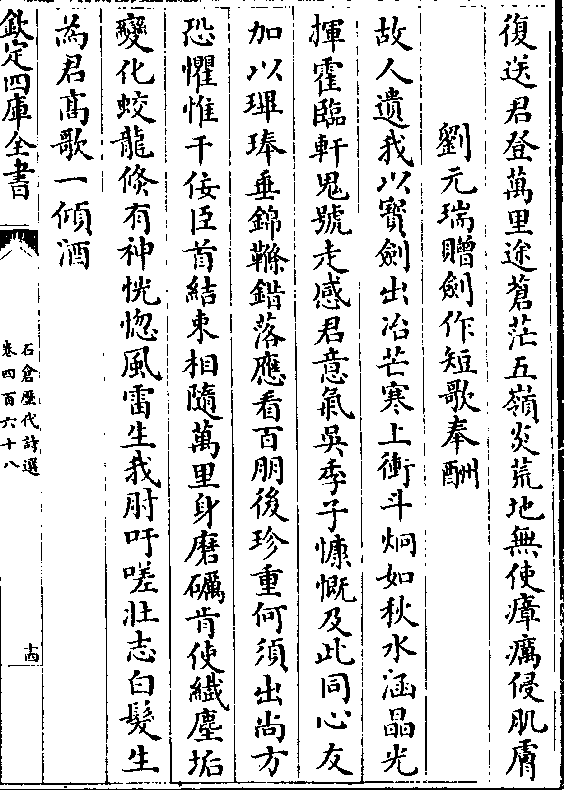 復送君登萬里途蒼茫五嶺炎荒地無使瘴癘侵肌膚
劉元瑞贈劍作短歌奉酬
故人遺我以寳劍出冶芒寒上衝斗炯如秋水涵晶光
揮霍臨軒鬼號走感君意氣吳季子慷慨及此同心友
加以琕琫垂錦鞶錯落應看百朋後珍重何須出尚方
恐懼惟干佞臣首結束相隨萬里身磨礪肯使纎塵垢
變化蛟龍倐有神恍惚風雷生我肘吁嗟壯志白髮生
為君髙歌一傾酒
欽定四庫全書
石倉歷代詩選
卷四百六十八
十四